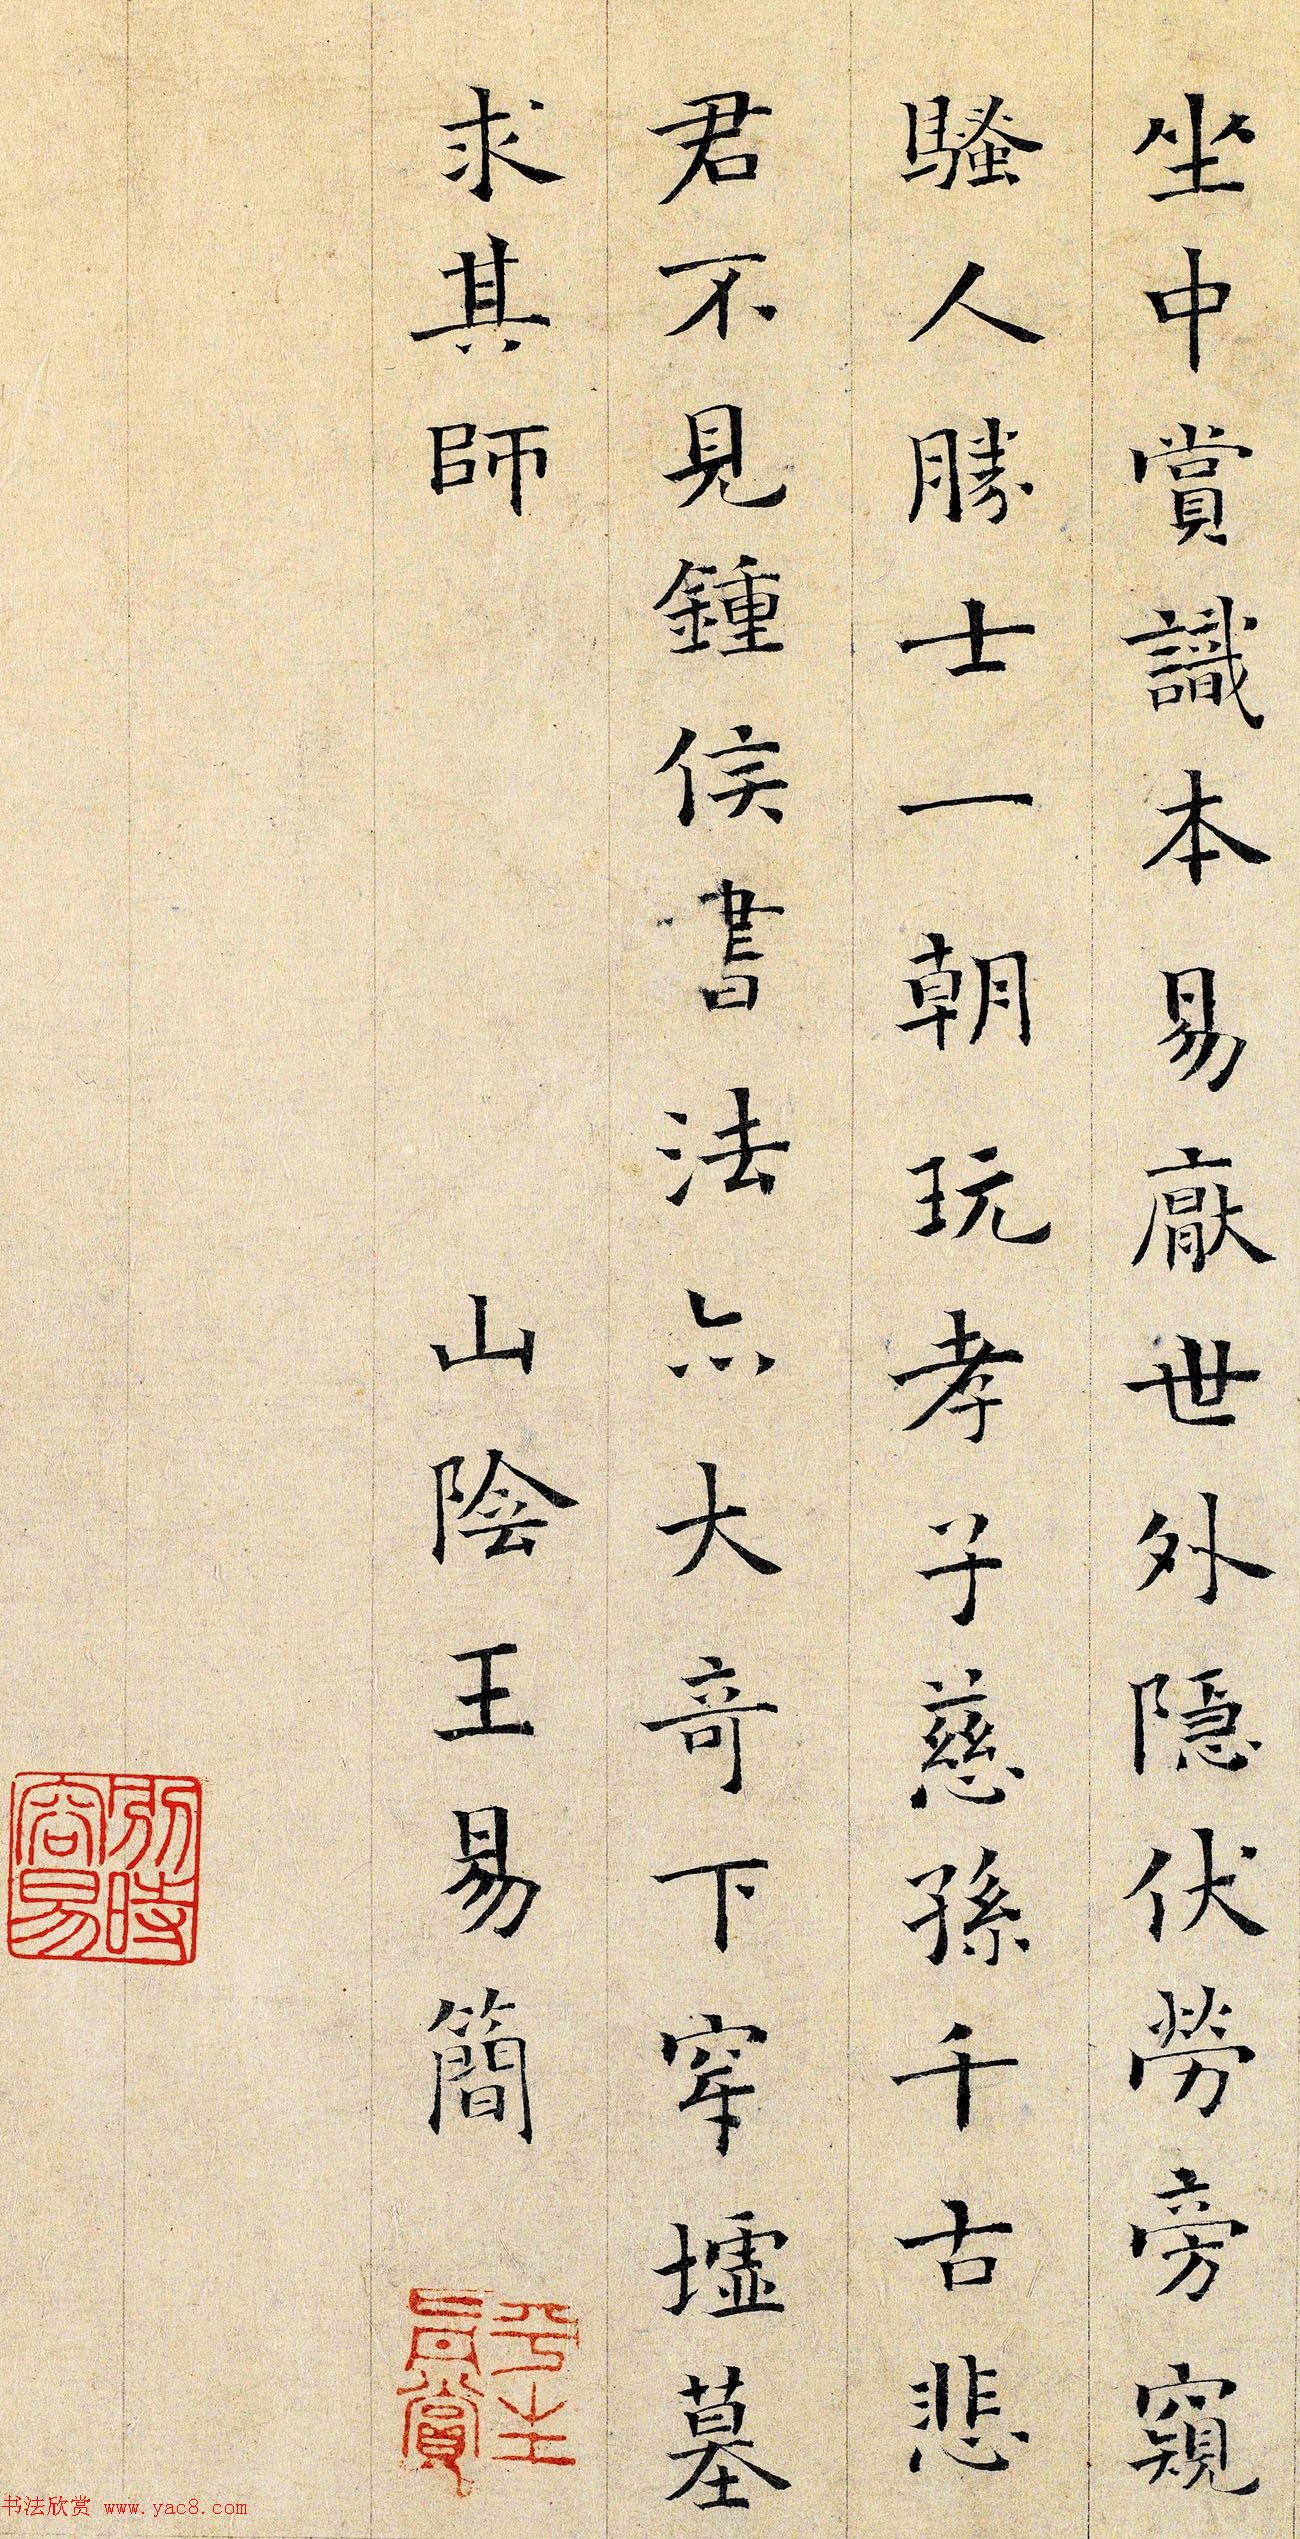 坐中賞識本易厭世外隱伏勞旁窺
騷人勝士一朝玩孝子慈孫千古悲
君不見鍾侯書法亦大奇下穿墟墓
求其師 山陰王易簡
平生真賞
別時容易
书法欣赏 www.yac8.com